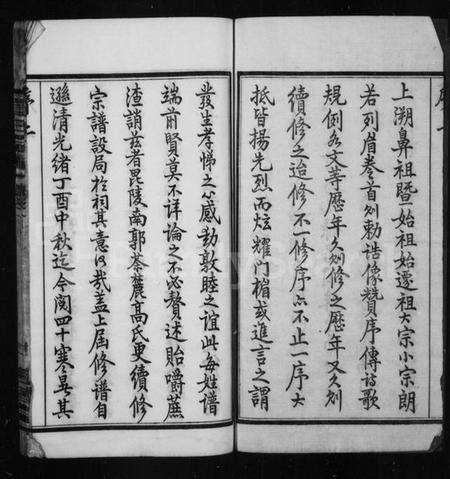 上溯鼻祖暨一始祖始遷祖大宗小宗朗
若列眉卷首列勅誥像贊序傳詩歌
規例各文等歷年久則修之歷年又久則
續修之迨修不一修序亦不止一序大
抵皆揚先烈而炫耀門楣或進言之謂
發生孝悌之感動敦睦之誼此每姓譜
端前賢莫不詳論之不必贅述貽嚼蔗
渣誚茲者毘陵南郭茶蘼高氏更續修
宗譜設局於祠其意何哉蓋上屆修譜自
遜清光緒丁酉中秋迄今閱四十寒暑其